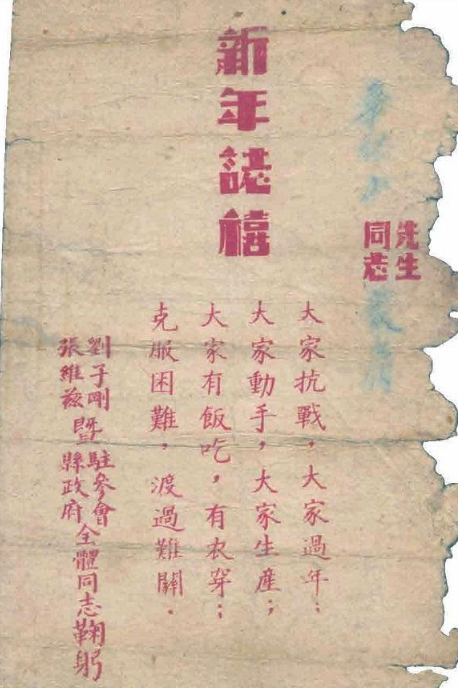 先生
同志
新年誌禧
大家抗戰，大家過年；
大家動手，大家生產；
大家有飯吃，有衣穿；
克服困難，渡過難關．
劉子剛
張維茲
暨
駐參會
縣政府
全體同志鞠躬